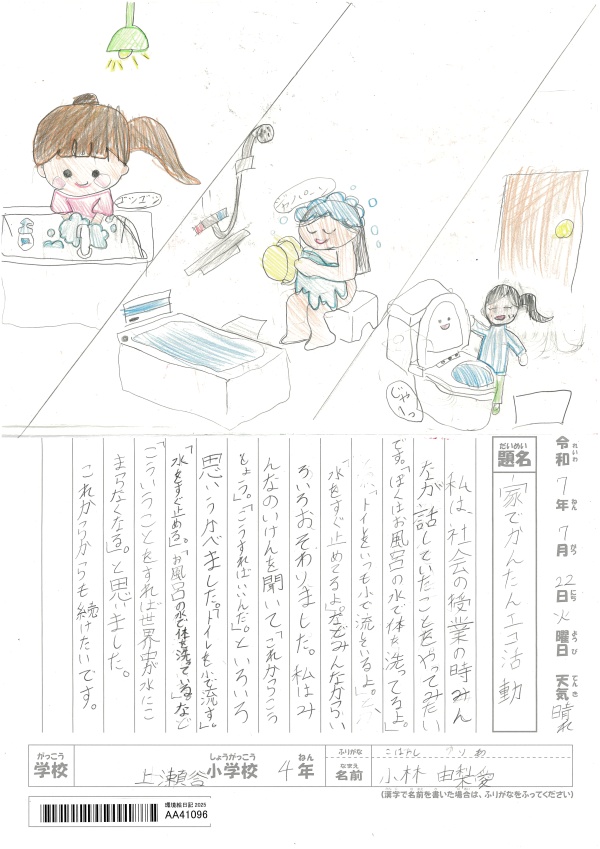 ゴシゴシ
じゃー
令和7年7月22日火曜日 天気 晴れ
れいわ ねん がつ にち ようび てんき
だいめい
題名 家でかんたんエコ活動
私は、社会の授業の時みん
なが話していたことをやってみたい
です。「ぼくはお風呂の水で体を洗ってるよ。」
「トイレをいつも小で流しているよ。」
「水をすぐ止めてるよ。」などみんなからい
ろいろおそわりました。私はみ
んなのいけんを聞いて「これからこう
しよう。」「こうすればいいんだ。」といろいろ
思いうかべました。「トイレを小で流す。」
「水をすぐ止める。」「お風呂の水で体を洗っている。」など
「こういうことをすれば世界中が水にこ
まらなくなる。」と思いました。
これからも続けたいです。
がっこう しょうがっこう ねん
学校 上瀬谷小学校 4年
ふりがな こばやし
なまえ
名前 小林 由梨愛
(漢字で名前を書いた場合は、ふりがなをふってください)
環境絵日記 2025
AA41096